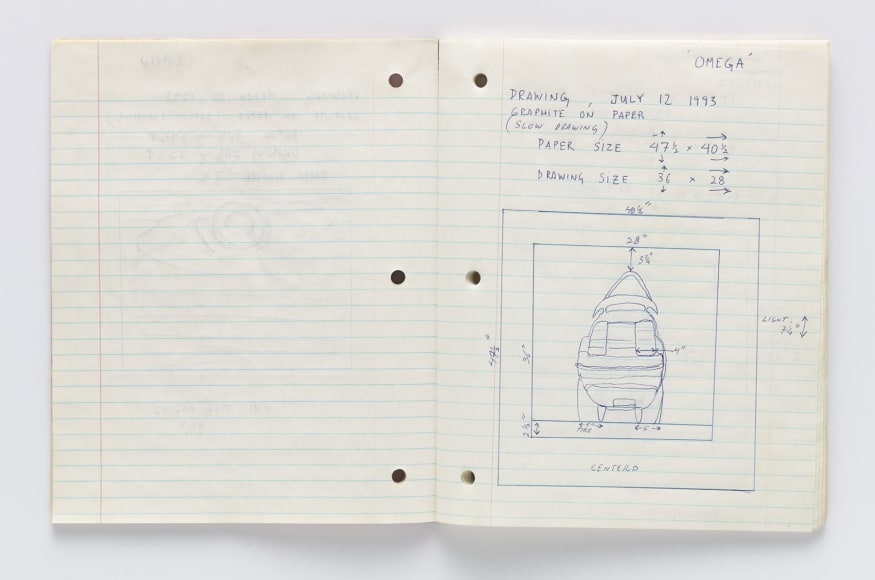 "OMEGA"
DRAWING, JULY 12 1993
GRAPHITE ON PAPER
(SLOW DRAWING)
PAPER SIZE 47 1/2 x 40 1/2
DRAWING SIZE 36 x 28
40 1/2"
28"
3 3/4"
LIGHT:
7 1/4"
4"
47 1/2"
36"
2 1/2"
TIRE
5
CENTERD